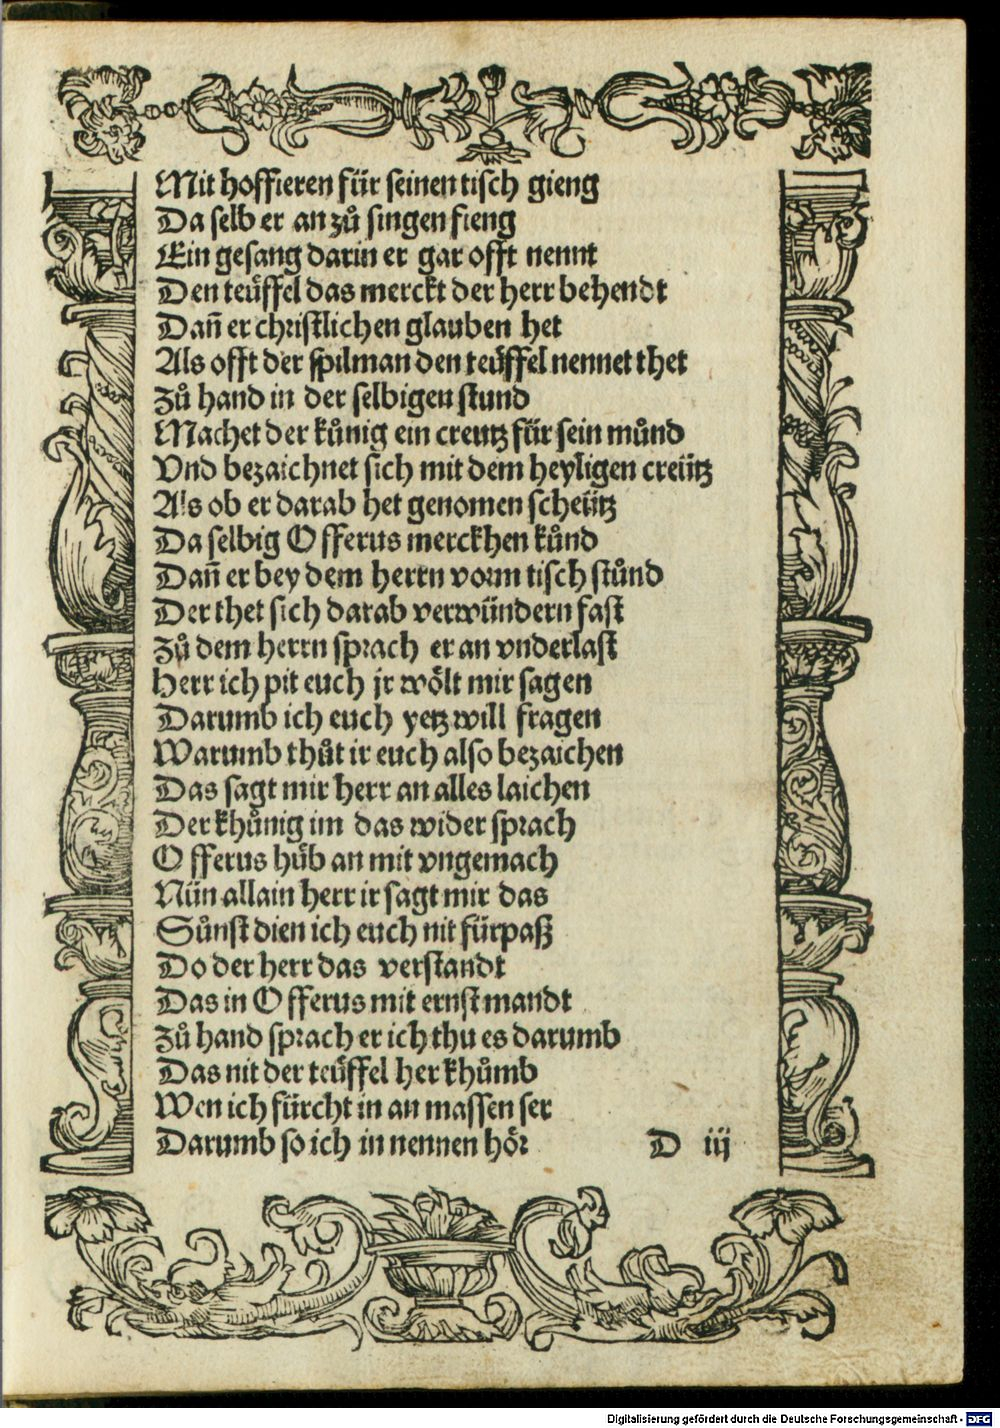 Mit hoffieren für seinen tisch gieng
Da selb er an zů singen fieng
Ein gesang darin er gar offt nennt
Den teüffel das merckt der herr behendt
Dañ er christlichen glauben het
Als offt der spilman den teüffel nennet thet
Zů hand in der selbigen stund
Machet der kůnig ein creutz für sein můnd
Vnd bezaichnet sich mit dem heyligen creütz
Als ob er darab het genomen scheütz
Da selbig Offerus merckhen kůnd
Dañ er bey dem herrn vorm tisch stůnd
Der thet sich darab verwündern fast
Zů dem herrn sprach er an vnderlast
Herr ich pit euch jr wölt mir sagen
Darumb ich euch yetz will fragen
Warumb thůt ir euch also bezaichen
Das sagt mir herr an alles laichen
Der khůnig im das wider sprach
Offerus hůb an mit vngemach
Nün allain herr ir sagt mir das
Sůnst dien ich euch nit fürpaß
Do der herr das verstandt
Das in Offerus mit ernst mandt
Zů hand sprach er ich thu es darumb
Das nit der teüffel her khůmb
Wen ich fürcht in an massen ser
Darumb so ich in nennen hör
D iij
Digitalisierung gefördert durch die Deutsche Forschungsgemeinschaft - DFG